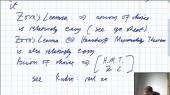 it
Zorn's Lemma ⇒ axiom of choice
is relatively easy (see go there)
Zorn's Lemma ⇔ Hausdorff Maximality Theorem
is also relatively easy.
Axiom of choice ⇒ { H.M.T.
Z.L.
see Rudin: real an